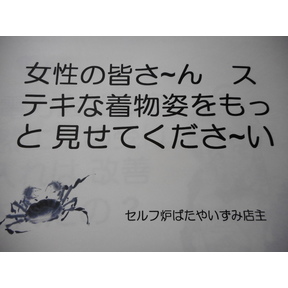 女性の皆さ~ん　ス
テキな着物姿をもっ
と見せてくださ~い
セルフ炉ばたやいずみ店主